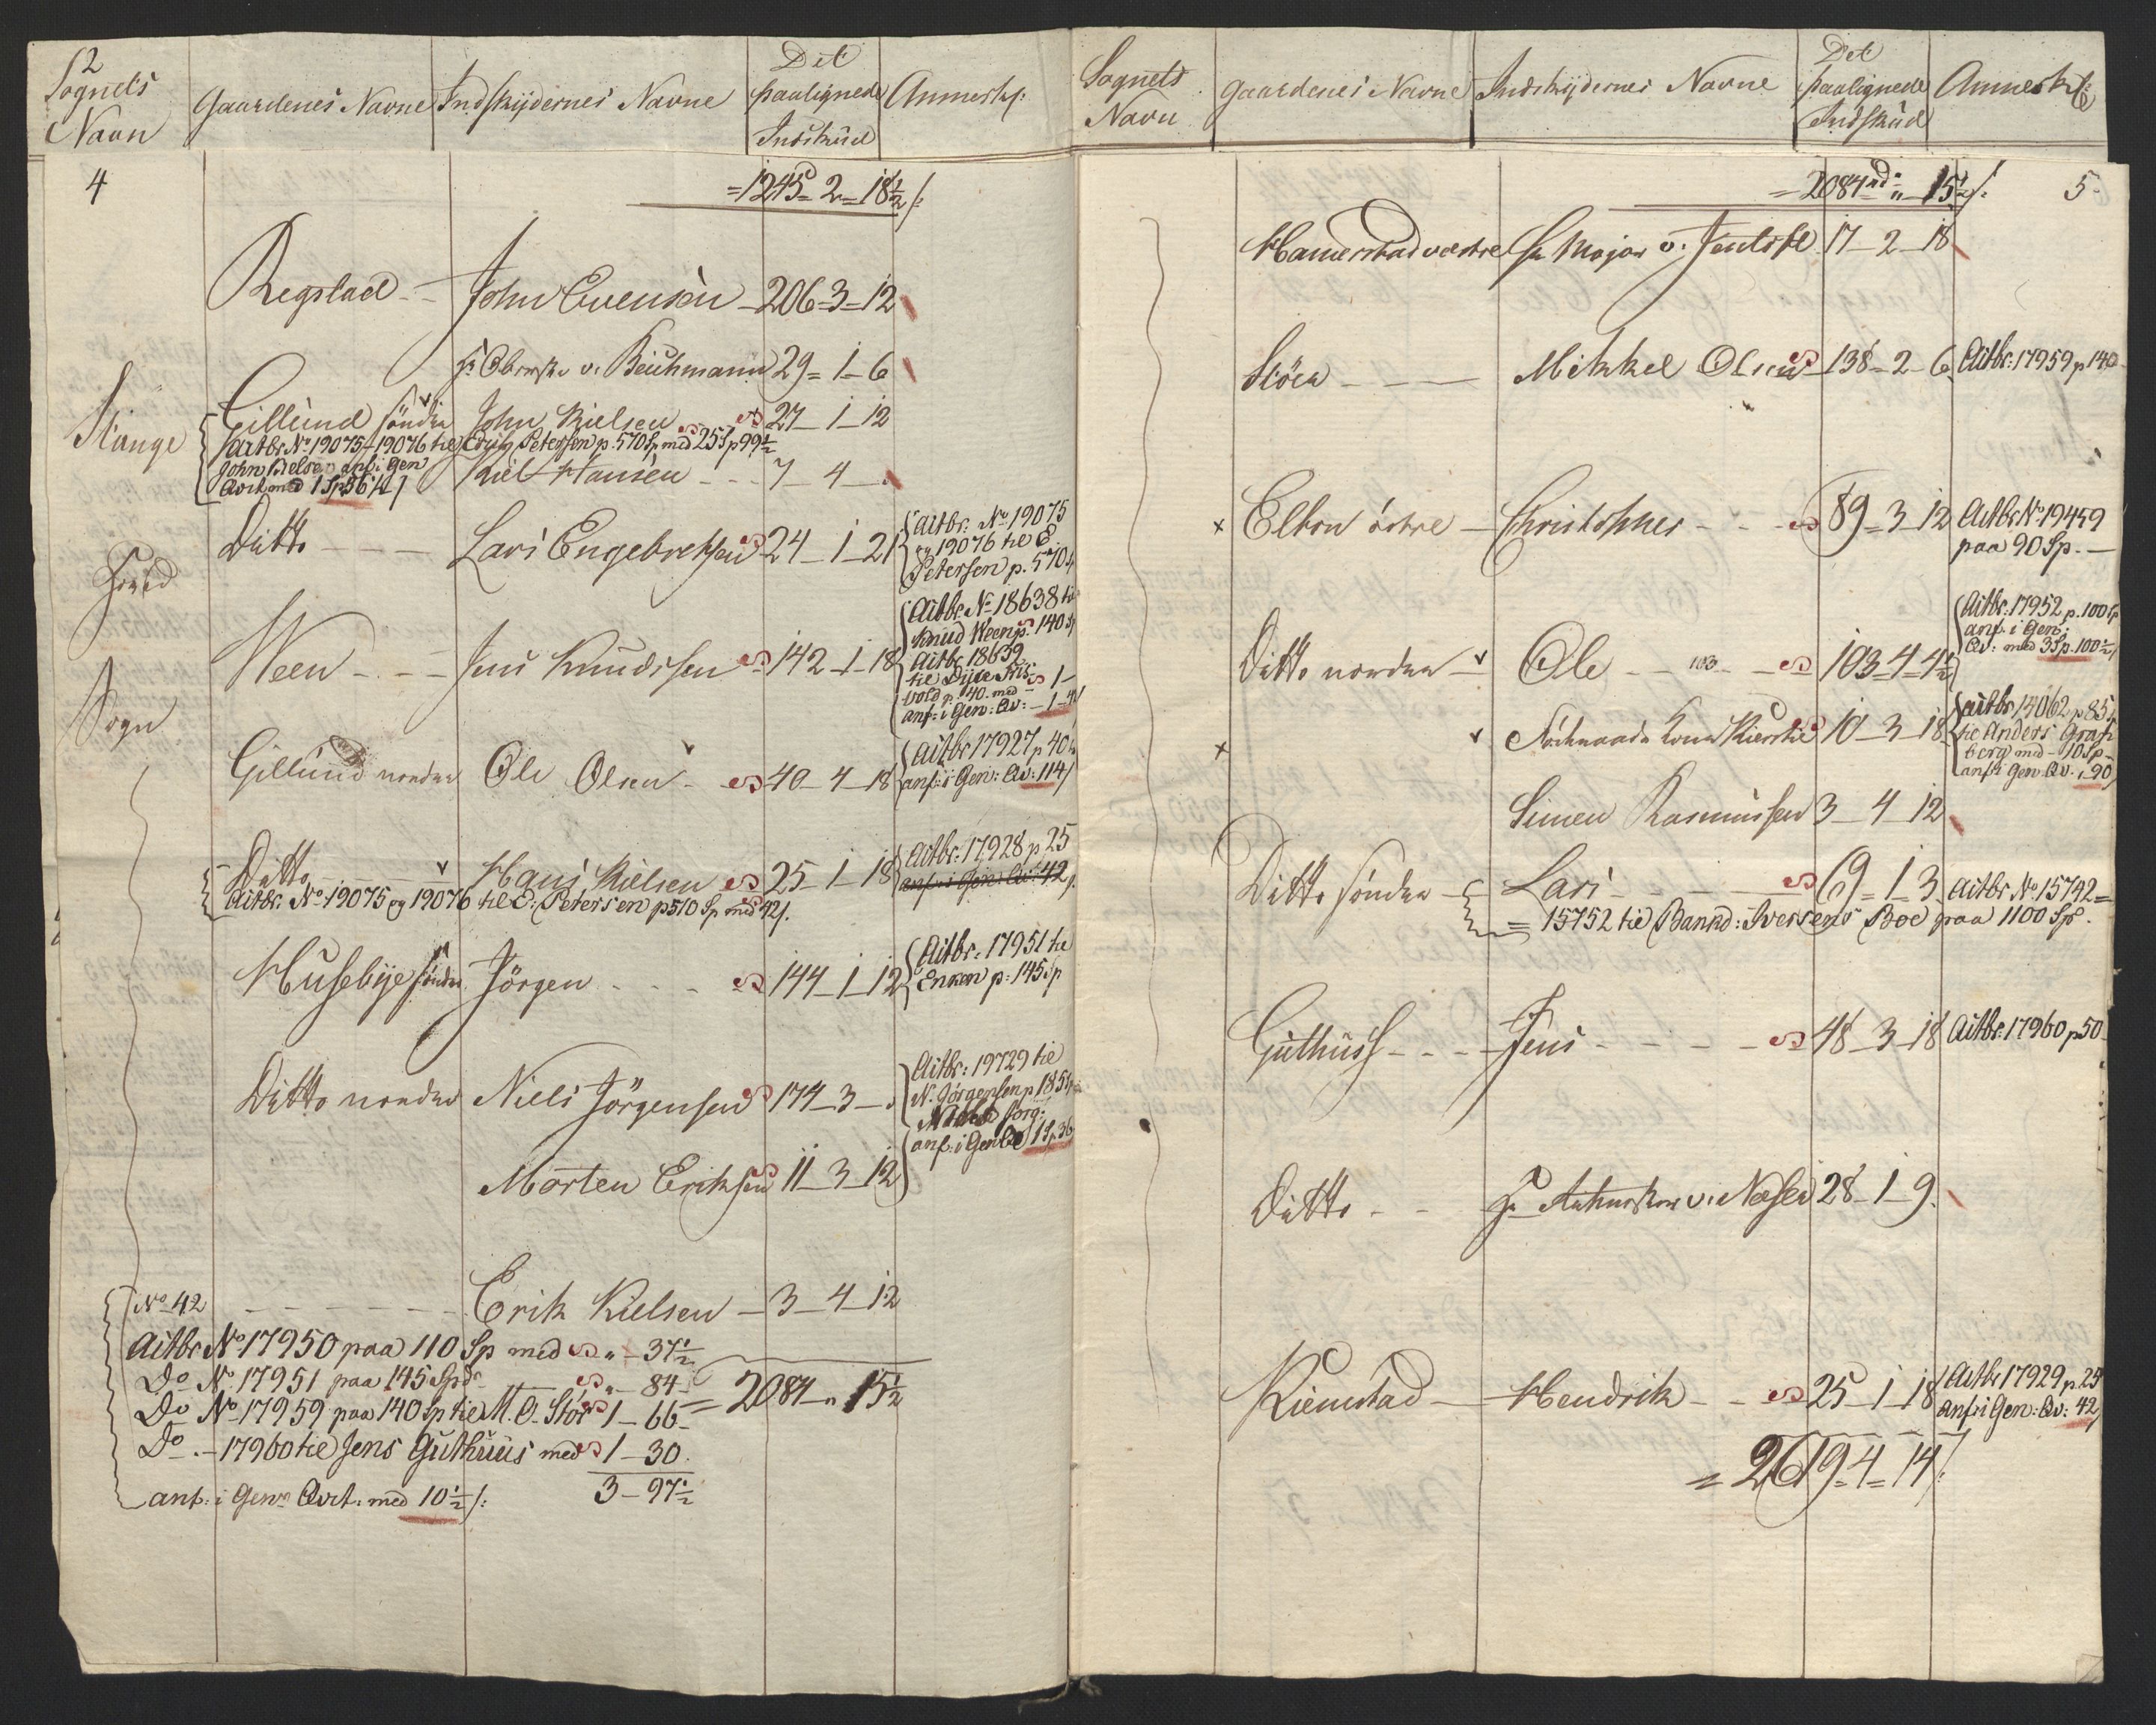 12
Sognets Navn
Gaardenes Navne
Indskydernes Navne
Det paalignede Indskud
Anmerkg:
4
= 1245 = 2 = 18 1/2 /:
Regstad - - John Evensen - 206 - 3 - 12
Stange
Hr Oberste v. Beichmann 29 - 1 - 6
Gillund söndre John Kielsen 27 - 1 - 12
Actbr No 19075 - 19076 til Erig Petersen p. 570 Sp med 25 Sp 99 1/2
John Kielsen anf. i Gen
Qvit med 1 Sp 56 1/2 /
Kiel Hansen - - - 7 - 4 -
Ditto - - - Lars Engebretsen 24 - 1 - 21
Actbr. No 19075
og 19076 til E
Petersen p. 570
Sogn
Ween - - - Jens Knudssen 142 - 1 - 18
Actbr. No 18638 til
Knud Ween p. 140 Sp
Actbr. 18639
vold p. 40. med - 1 -
anf: i Gen: Qv: - 1 - 4
Gillund nordre Ole Olsen - 40 - 4 - 18
Actbr 17927 p 40
anf: i Gen: Qv: 114 /
Ditto Hans Kielsen 25 - 1 - 18
Actbr: 17928 p 25
anf: i Gen: Qv: 42 /.
Actbr. No 19075 og 19076 til E: Petersen p 570 Sp med 42 /.
Husebye söndre Jörgen - - - 144 - 1 - 12
Actbr. 17951 til
Enken p: 145 Sp
Ditto nordre Niels Jörgensen 174 - 3 -
Actbr: 19729 til
N. Jörgensen p 185
Jörg:
anf: i Gen Qv 1 Sp 36
Morten Eriksen 11 - 3 - 12
No 42 - - - - - - Erik Kielsen - 3 - 4 - 12
Actbr No 17950 paa 110 Sp med " - 37 1/2
Do No 17951 paa 145 Spd - " - 84 -
Do No 17959 paa 140 Sp til M. O. Stör 1 - 66 -
= 2084 - " 15 1/2
Do. - 17960 til Jens Guthuus med 1 - 30.
3 - 97 1/2
anf: i Genr Qvit: med 10 1/2 /:
Sognets Navn
Gaardenes Navne
Indskydernes Navne
Det paalignede Indskud
Anmerkg:
5
= 2084 rd " 15 1/2 /:
Hamerstad vestre Hr Major v. 17 - 2 - 18
Stöen - - - Mikkel Olsen 138 - 2 - 6
Actbr: 17959 p 140
x Elton östre - Christopher - - - 89 = 3 - 12
Actbr No 19459
paa 90 Sp. -
Ditto nordre - v Ole - - 103 - - 103 - 4 - 4 1/2
Actbr: 17952 p. 100 Sp
anf. i Gen:
Qv: med 3 Sp. 100 1/2 /
x v Kone Kierstie 10 - 3 - 18
til Anders Grafs
berg med - 10 Sp -
anf: i Gen Qv. 1 - 90
Simen Rasmussen 3 - 4 - 12
Ditto söndre - Lars - - - 69 - 1 - 3
Actbr No 15742 =
= 15752 til Bankd: Iversens Boe paa 1100 Sp.
Guthuss - - - Jens - - - - 48 - 3 - 18
Actbr 17960 p 50
Ditto - - Hr v: Næsen 28 - 1 - 9.
Kiemstad - Hendrik - - 25 - 1 - 18
Actbr 17929 p. 25
anf: i Gen: Qv: 42 /
= 2619 = 4 = 14 /: